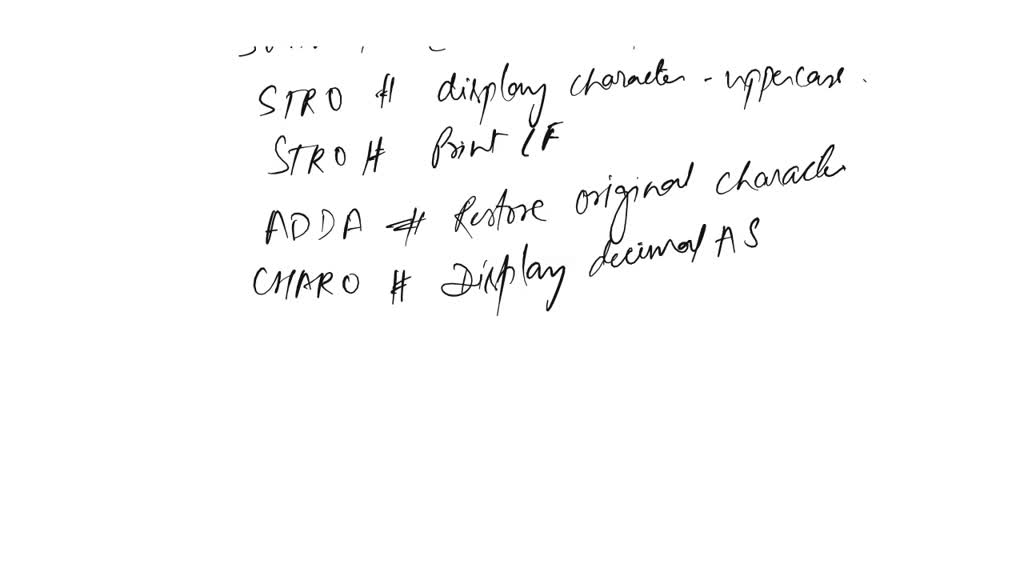 STRO # display character - uppercase.
STRO # Print LF
ADDA # Restore original character
CHARO # Display decimal AS